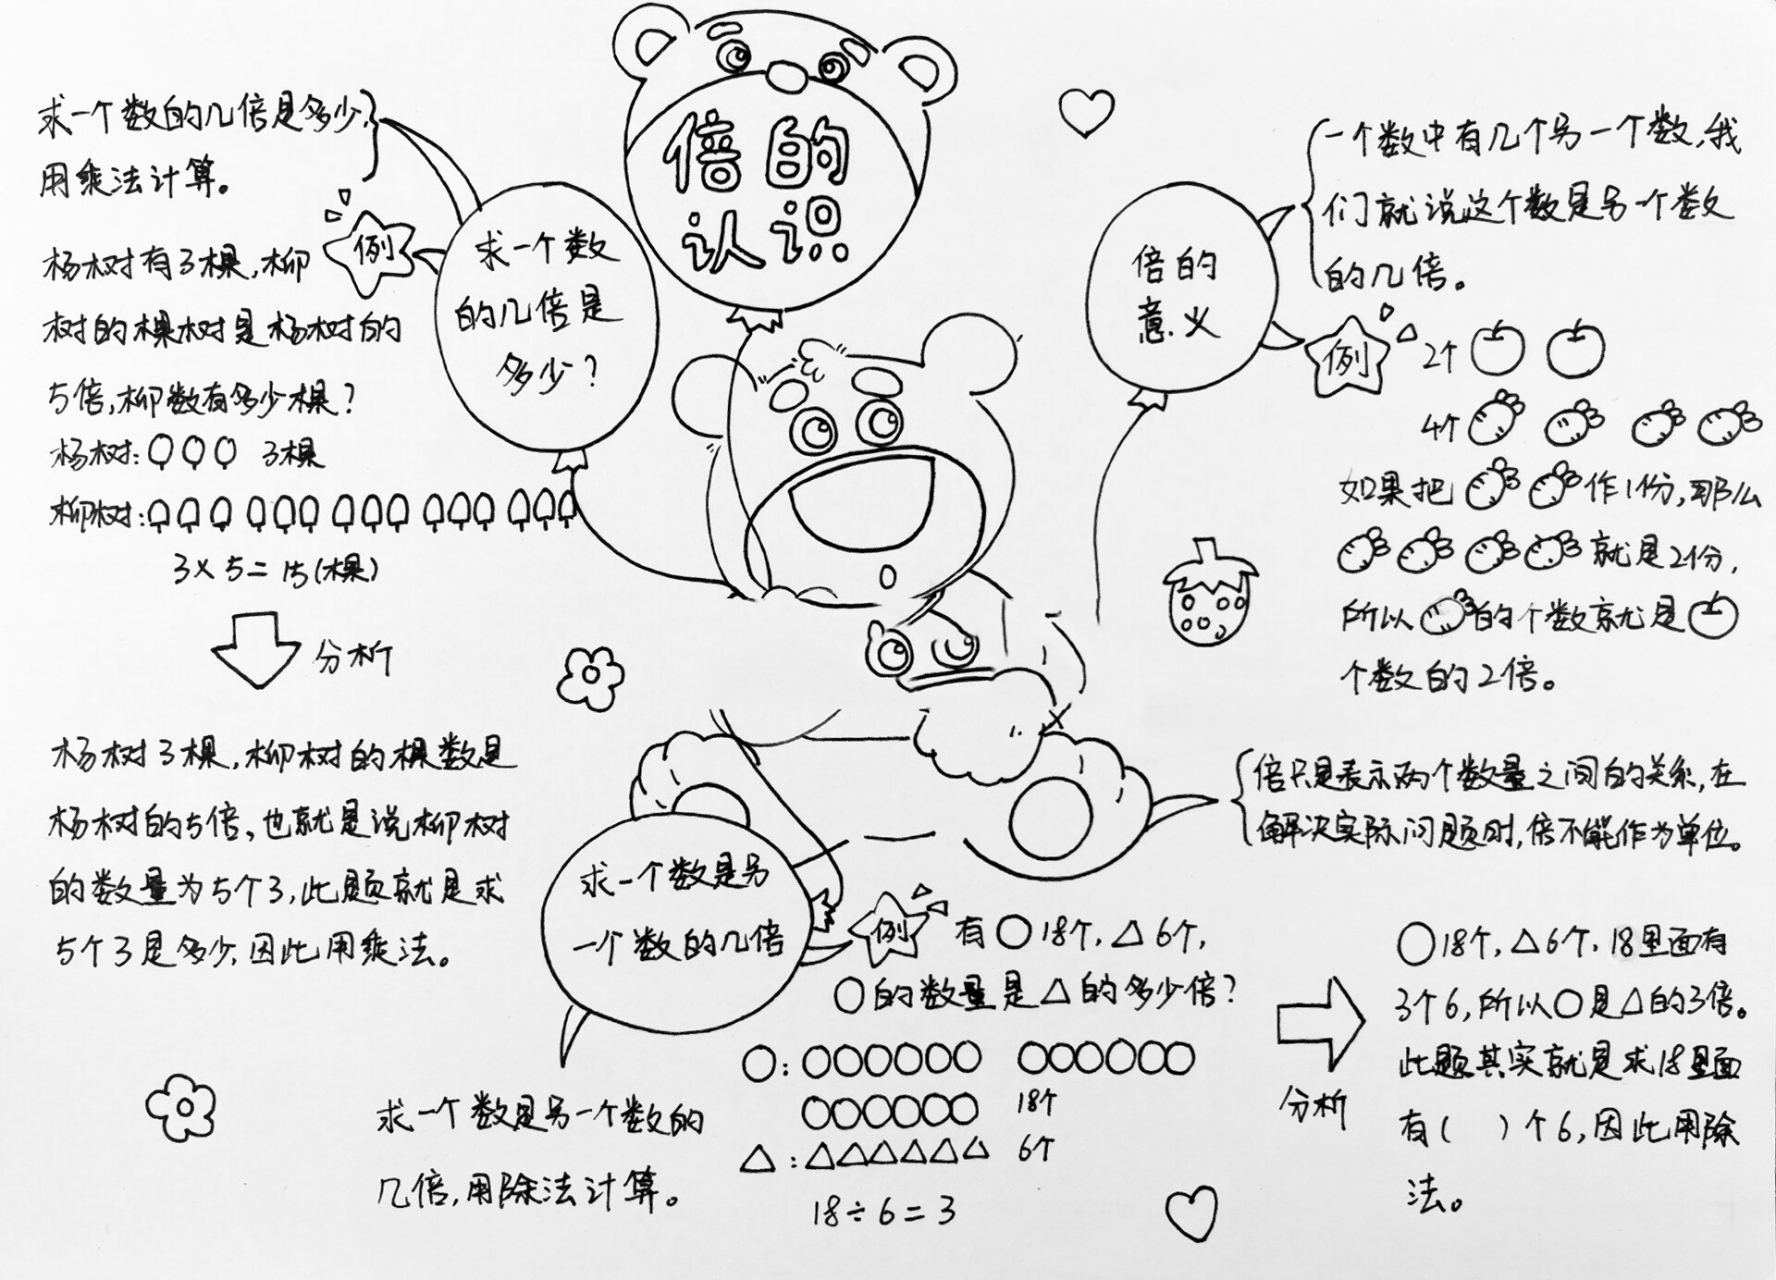 倍的
认识
求一个数的几倍是多少,
用乘法计算。
求一个数
的几倍是
多少？
例
杨树有3棵,柳
树的棵树是杨树的
5倍,柳数有多少棵？
杨树: 3棵
柳树:
3×5=15(棵)
分析
杨树3棵,柳树的棵数是
杨树的5倍,也就是说柳树
的数量为5个3,此题就是求
5个3是多少,因此用乘法。
倍的
意义
一个数中有几个另一个数,我
们就说这个数是另一个数
的几倍。
例
2个
4个
如果把 作1份,那么
就是2份,
所以 的个数就是
个数的2倍。
倍只是表示两个数量之间的关系,在
解决实际问题时,倍不能作为单位。
求一个数是另
一个数的几倍
求一个数是另一个数的
几倍,用除法计算。
例
有○18个,△6个,
○的数量是△的多少倍?
○:○○○○○○ ○○○○○○
○○○○○○ 18个
△:△△△△△△ 6个
18÷6=3
分析
○18个,△6个,18里面有
3个6,所以○是△的3倍。
此题其实就是求18里面
有( )个6,因此用除
法。